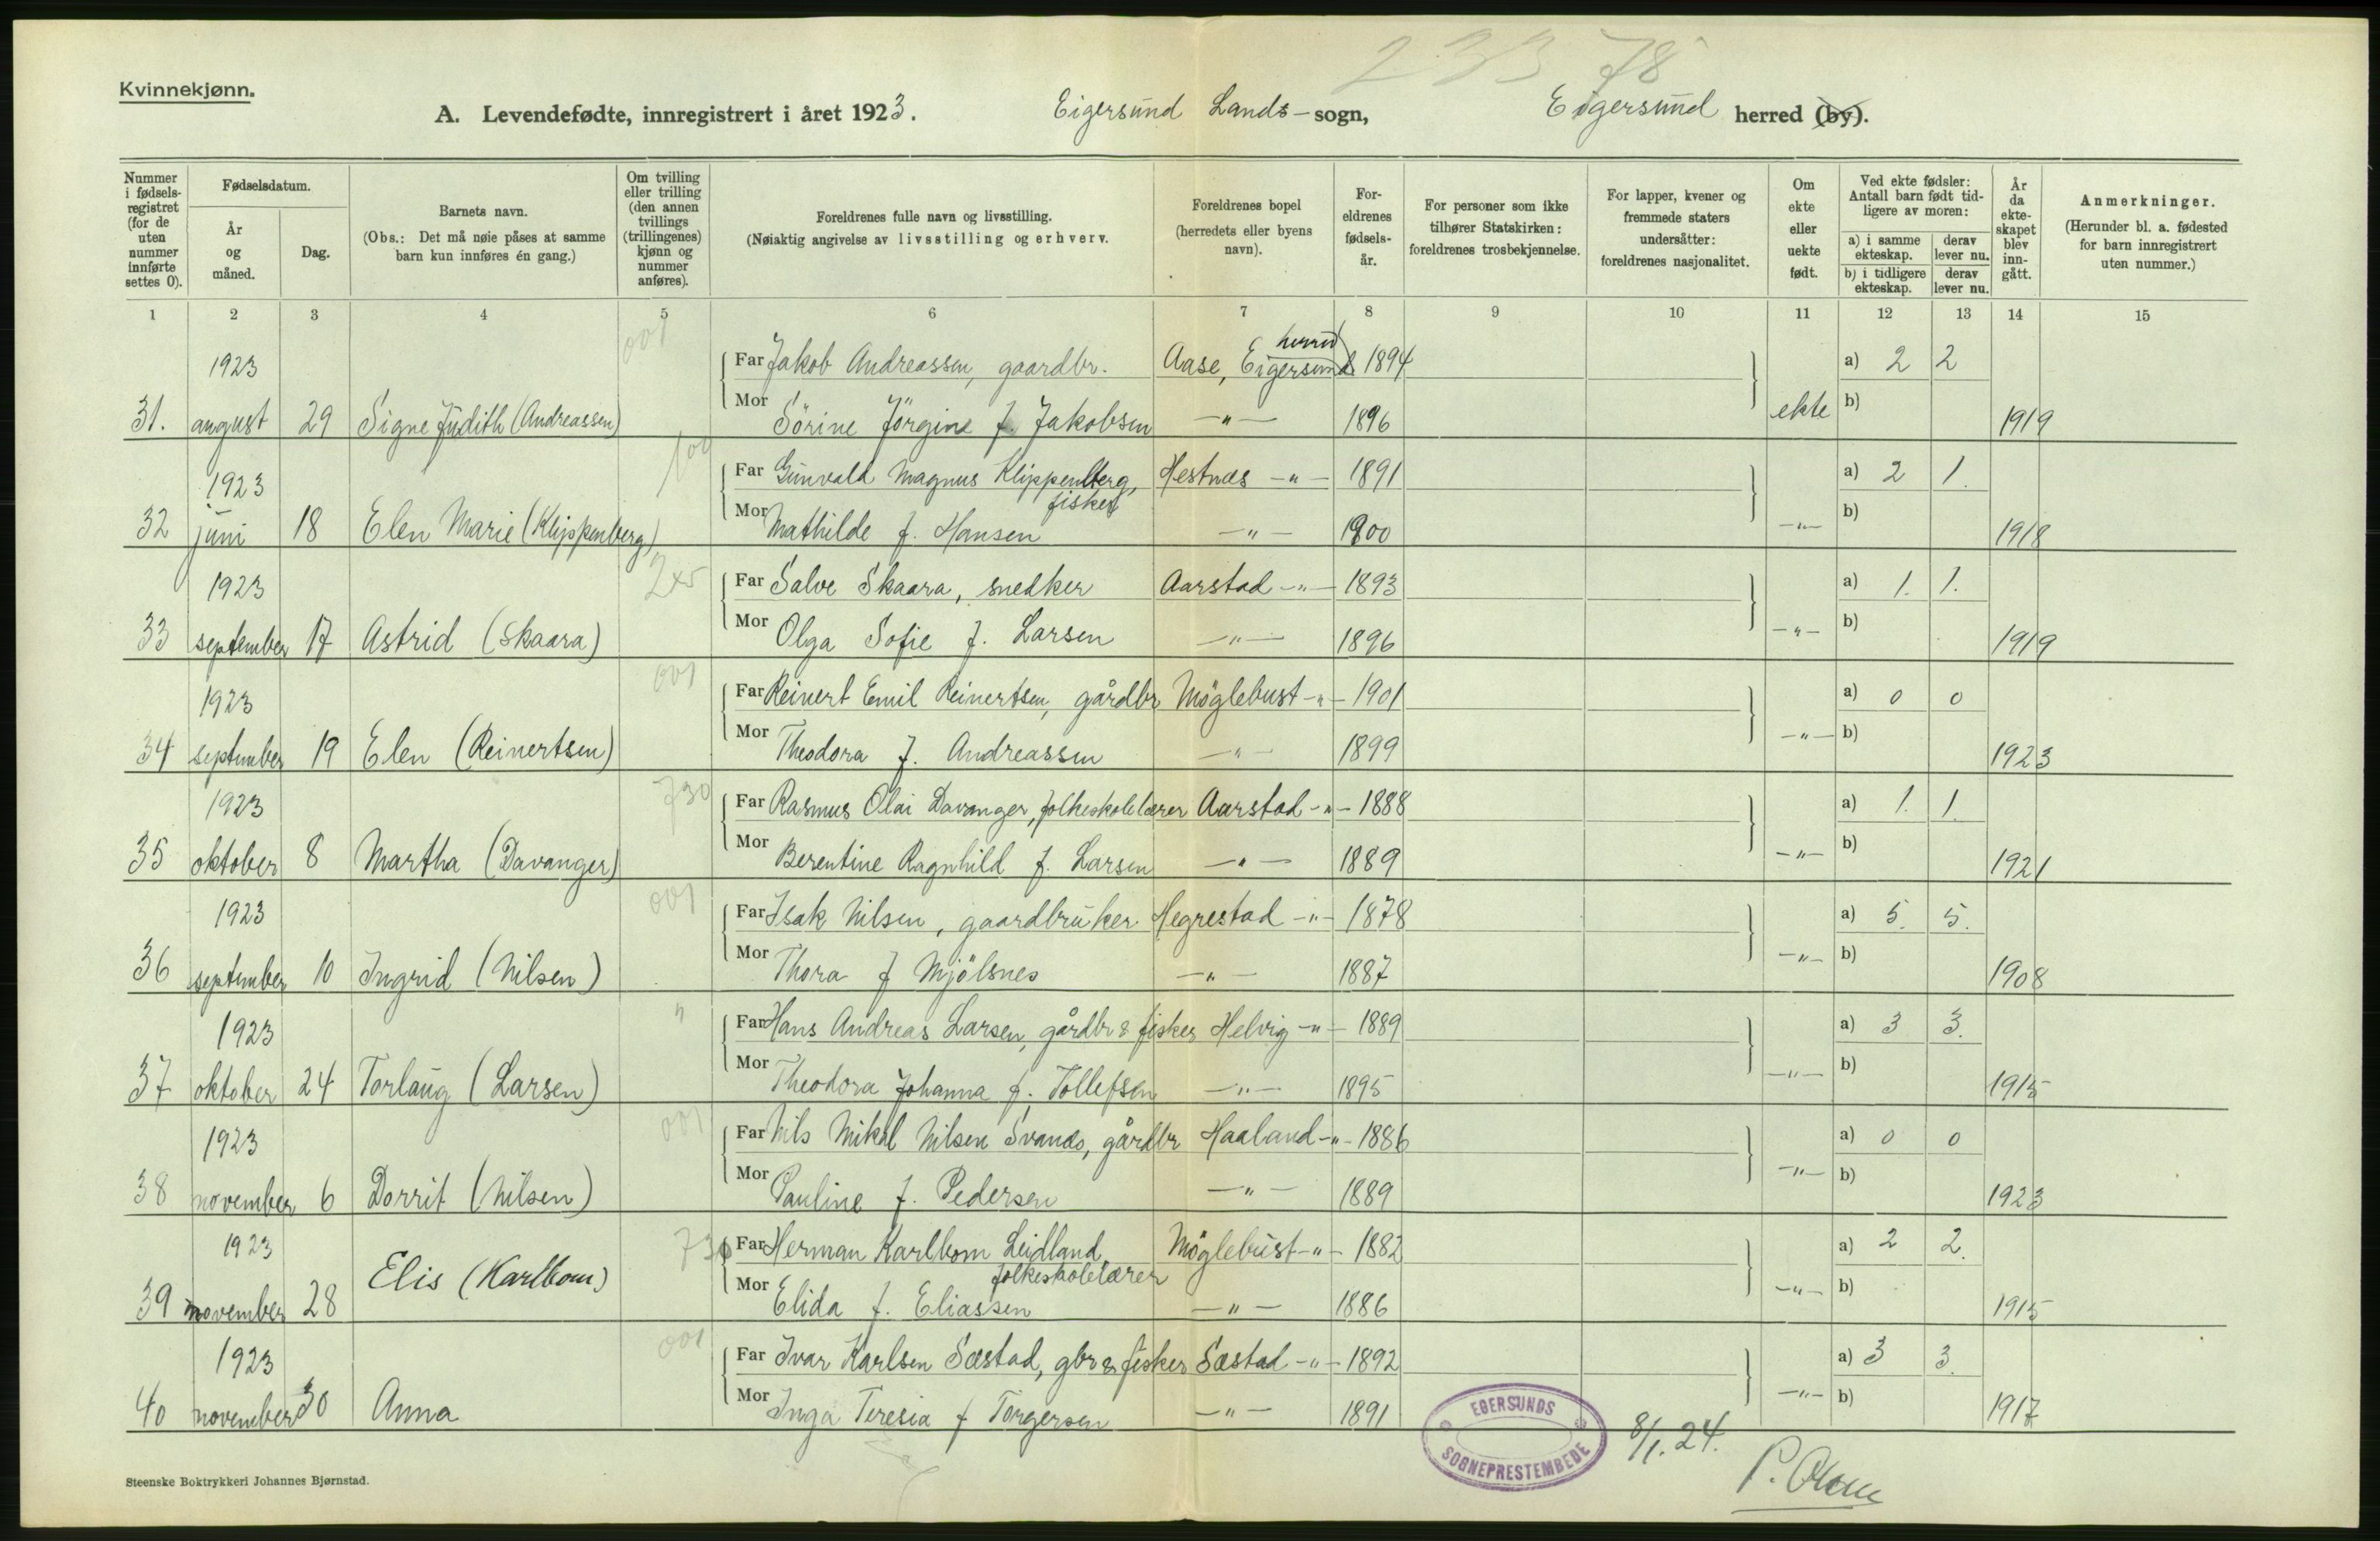 233 78
Kvinnekjønn.
A. Levendefødte, innregistrert i året 1923. Eigersund Lands-sogn, Eigersund herred (by).
Nummer i fødsels-registret (for de uten nummer innførte settes 0).
Fødselsdatum.
År og måned.
Dag.
Barnets navn.
(Obs.: Det må nøie påses at samme barn kun innføres én gang.)
Om tvilling eller trilling (den annen tvillings (trillingenes) kjønn og nummer anføres).
Foreldrenes fulle navn og livsstilling.
(Nøiaktig angivelse av livsstilling og erhverv.
Foreldrenes bopel (herredets eller byens navn).
For-eldrenes fødsels-år.
For personer som ikke tilhører Statskirken: foreldrenes trosbekjennelse.
For lapper, kvener og fremmede staters undersåtter: foreldrenes nasjonalitet.
Om ekte eller uekte født.
Ved ekte fødsler: Antall barn født tid-ligere av moren:
a) i samme ekteskap. derav lever nu.
b) i tidligere ekteskap. derav lever nu.
År da ekte-skapet blev inn-gått.
Anmerkninger.
(Herunder bl. a. fødested for barn innregistrert uten nummer.)
1 2 3 4 5 6 7 8 9 10 11 12 13 14 15
001
1923 Far Jakob Andreassen, gaardbr. Aase, Eigersund herred 1894 a) 2 2
31. august 29 Signe Judith (Andreassen) Mor Sörine Jörgine f. Jakobsen -"- 1896 ekte b) 1919
100
1923 Far Gunvald Magnus Klippenberg, fisker Hestnes -"- 1891 a) 2 1.
32 juni 18 Elen Marie (Klippenberg) Mor Mathilde f. Hansen -"- 1900 -"- b) 1918
1923 Far Salve Skaara, snedker Aarstad -"- 1893 a) 1. 1.
33 september 17 Astrid (Skaara) Mor Olga Sofie f. Larsen -"- 1896 -"- b) 1919
001
1923 Far Reinert Emil Reinertsen, gårdbr Möglebust -"- 1901 a) 0 0
34 september 19 Elen (Reinertsen) Mor Theodora f. Andreassen -"- 1899 -"- b) 1923
730
1923 Far Rasmus Olai Davanger, folkeskolelærer Aarstad -"- 1888 a) 1. 1
35 oktober 8 Martha (Davanger) Mor Berentine Ragnhild f. Larsen -"- 1889 -"- b) 1921
001
1923 Far Isak Nilsen, gaardbruker Hegrestad -"- 1878 a) 5. 5.
36 september 10 Ingrid (Nilsen) Mor Thora f Mjölsnes -"- 1887 -"- b) 1908
"
1923 Far Hans Andreas Larsen, gårdbr & fisker Helvig -"- 1889 a) 3 3.
37 oktober 24 Torlaug (Larsen) Mor Theodora Johanna f. Tollefsen -"- 1895 -"- b) 1915
001
1923 Far Nils Mikal Nilsen Svands, gårdbr Haaland -"- 1886 a) 0 0
38 november 6 Dorrit (Nilsen) Mor Pauline f. Pedersen -"- 1889 -"- b) 1923
730
1923 Far Herman Karlbom Leidland, folkeskolelærer Möglebust -"- 1882 a) 2 2.
39 november 28 Elis (Karlbom) Mor Elida f. Eliassen -"- 1886 -"- b) 1915
001
1923 Far Ivar Karlsen Sæstad, gbr & fisker Sæstad -"- 1892 a) 3 3.
40 november 30 Anna Mor Inga Teresia f Torgersen -"- 1891 -"- b) 1917
EGERSUNDS SOGNEPRESTEMBEDE
8/1. 24.
Steenske Boktrykkeri Johannes Bjørnstad.